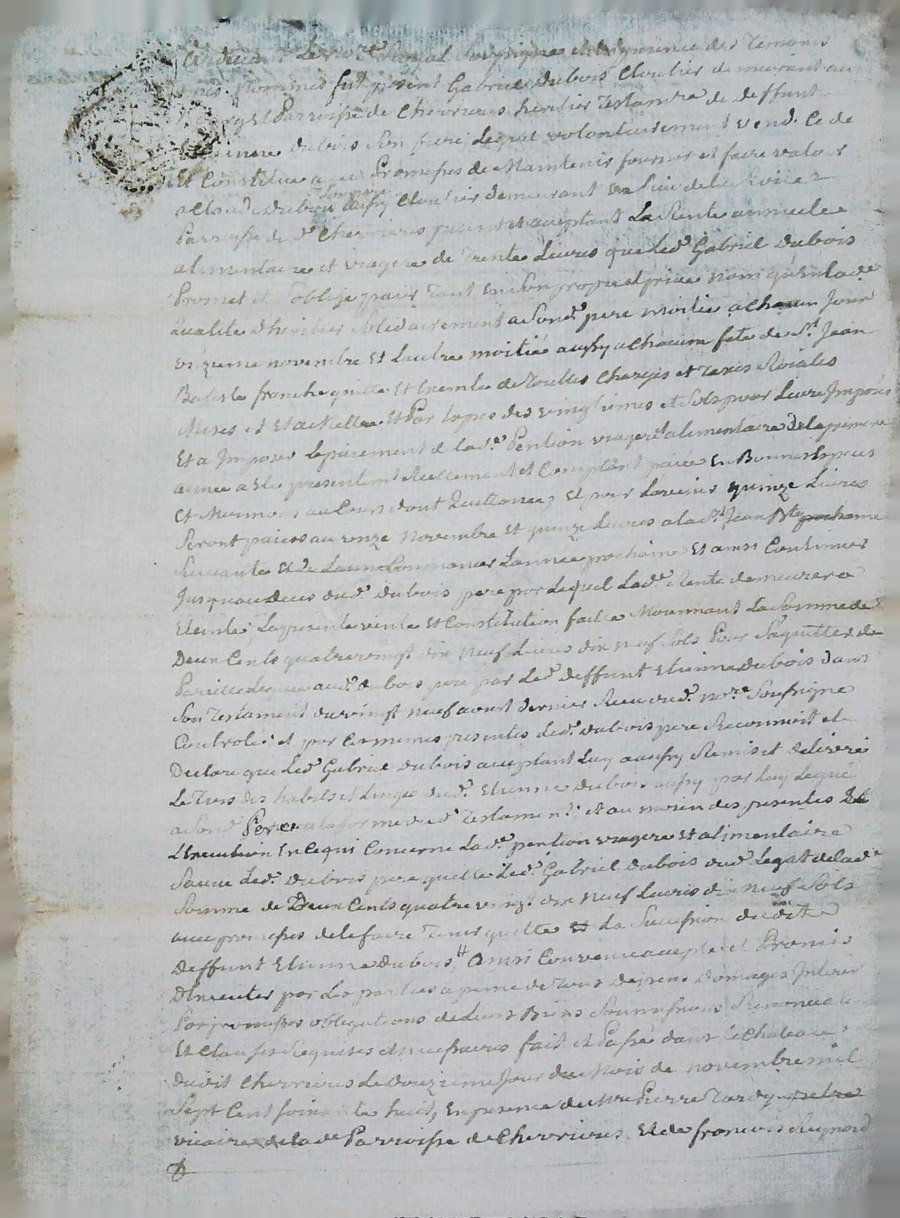 Pardevant Le no.re Royal soussigné et En presence des Temoins
Bas Nommés fut present Gabriel Dubois Cloutier demeurant au
et Parroisse de Chevrieres heritier Testam.re de deffunt
Etienne dubois Son frere Lequel volontairement vend Ce de
Et Constitue avec Promesses de Maintenir fournir et faire valoir
a Claude Dubois Son pere aussy Cloutier demeurant
Parroisse de d.t Chevrieres present et acceptant La Rente annuele
alimentaire et viagere de Trente Livres que Led. Gabriel Dubois
Promet et S'oblige paier Tant En Son propre et privé Nom qu'en lad.e
qualité d'heritier Solidairement a Sond. pere moitié a chacun Jour
onzieme novembre Et L'autre moitié aussy a chacune fete de S.t Jean
Batiste franche quitte Et Exempte de Touttes Charges et Taxes Roiales
Mises et Et a Mettre Et Par Expres des vingtiemes et Sols pour Livre Imposés
Et a Imposer Le paiement de lad.e Pention viagere et alimentaire de la premiere
année a Eté presentement Reellement et Comptant paiée En Bonnes Especes
Et Monnoies au Cours dont Quittance, Et pour L'avenir quinze Livres
Seront paiées au onze Novembre Et quinze Livres a la S.t Jean B.te prochaine
Suivante Et De La un Commencer L'année prochaine Et ainsi Continuer
Jusqu'au deces dud. Dubois pere par Lequel Lad.e Rente demeurera
Eteinte La presente vente Et Constitution faite Moiennant La Somme de
Deux Cents quatre vingt dix Neuf Livres dix neuf Sols Pour S'aquitter de
Pareille Leguée aud. dubois pere par Led. deffunt Etienne Dubois dans
Son Testament du vingt Neuf aoust dernier Receu dud. No.re Soussigné
Controlé: et par Ces memes presentes Led. dubois pere Reconnoit et
Declare que Led. Gabriel dubois acceptant Luy a aussy Remis et delivré
Le Tiers des habits et Linges dud. Etienne Dubois aussy par Luy Legué
a Sond. Pere a la forme dud. Testament: et au moien des presentes Et de
L'Execution En Ce qui Concerne Lad.e pention viagere Et alimentaire
Sauve Led. Dubois pere quitte Led. Gabriel Dubois dud. Legat de lad.e
Somme de Deux Cents quatre vingt dix Neuf Livres dix neuf Sols
avec promesses de Le faire Tenir quitte Et La Succession dudit
Deffunt Etienne Dubois Ainsi Convenu accepté et Promis
D'Executer par Les parties a peine de Tous depens domages Interets
Par promesses obligations de Leurs Biens Soumissions Renonciations
Et Clauses Requises et necessaires fait et Passé dans Le Chateau
Dudit Chevrieres Le douzieme Jour du Mois de novembre mil
Sept Cent Soixante huit, En presence de M.re Pierre Tardy
vicaire de la de Parroisse de Chevrieres Et de francois Reymond